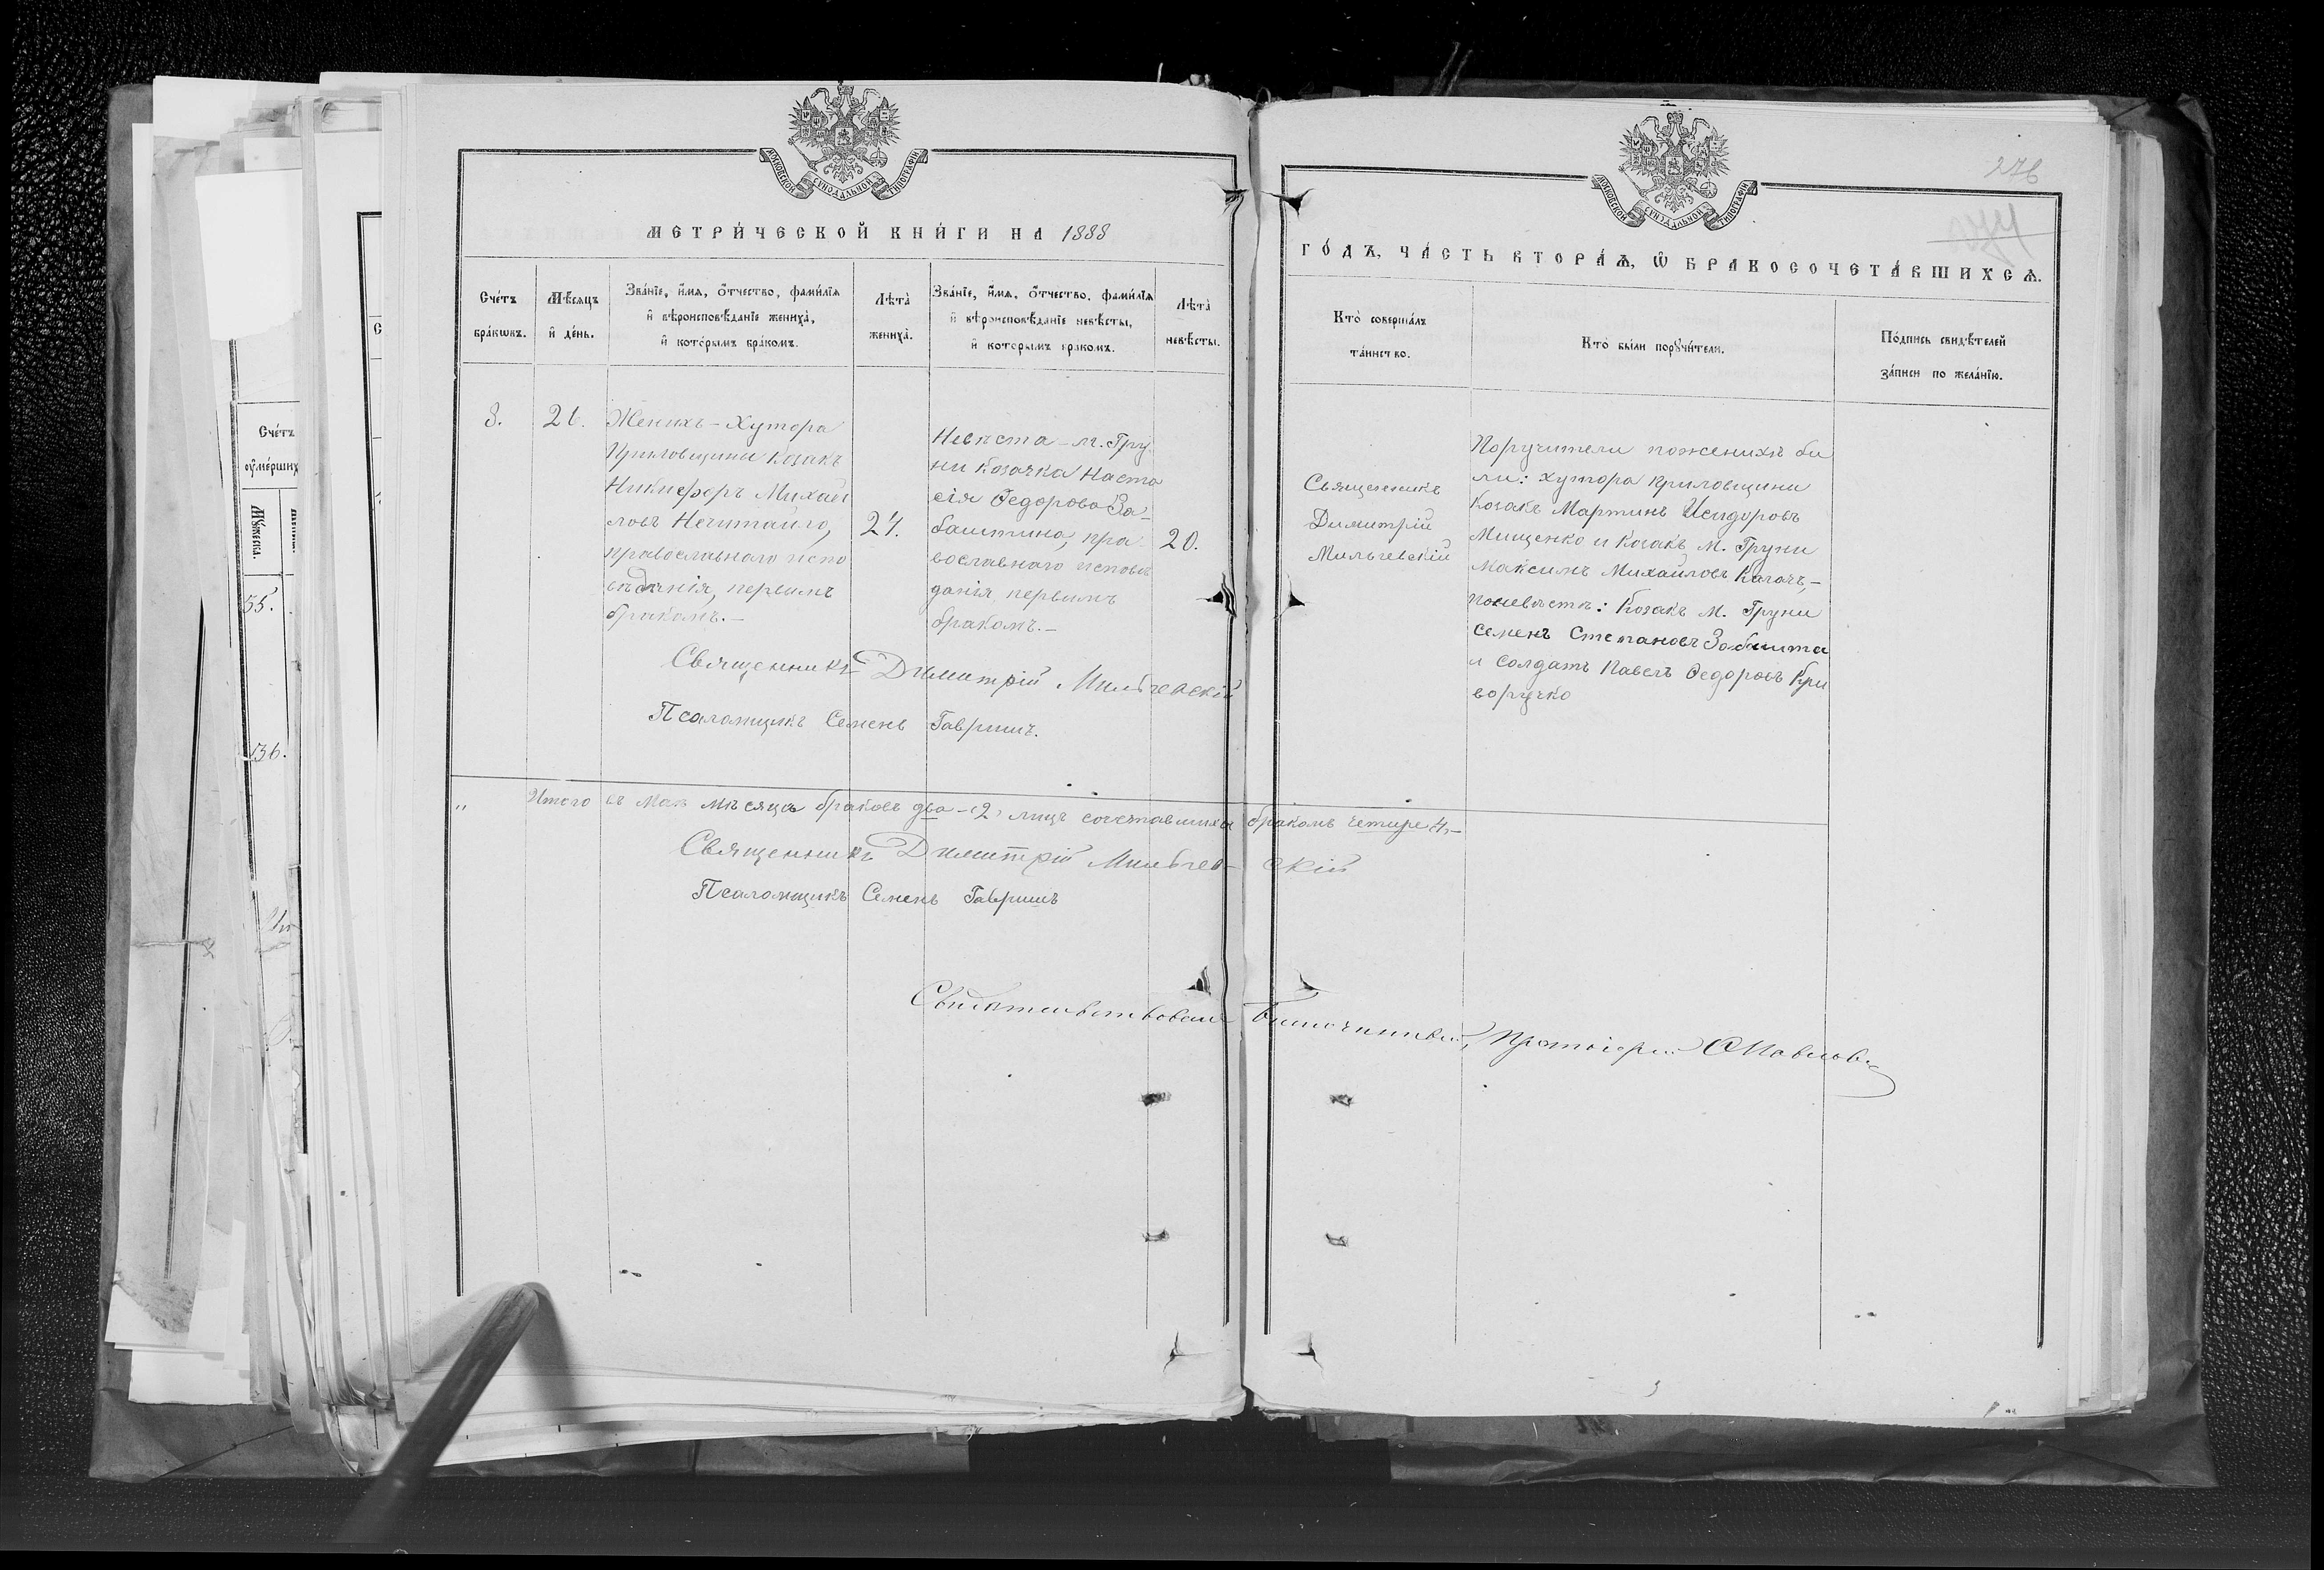 МОСКОВСКОЙ СѴНОДАЛЬНОЙ ТИПОГРАФІИ
МЕТРИ́ЧЕСКОЙ КНИ́ГИ НА 1888
Сче́тъ бра́кωвъ.
Мѣ́сяцъ и҆ де́нь.
Зва́нїе, и҆́мѧ, ѻ҆́тчество, фами́лїѧ
и҆ вѣроисповѣ́данїе жениха̀,
и҆ кото́рымъ бра́комъ.
Лѣта̀ жениха̀.
Зва́нїе, и҆́мѧ, ѻ҆́тчество, фами́лїѧ
и҆ вѣроисповѣ́данїе невѣ́сты,
и҆ кото́рымъ бра́комъ.
Лѣта̀ невѣ́сты.
8.
26.
Женихъ - Хутора
Криловщины Козакъ
Никифоръ Михай
ловъ Нечитайло,
православнаго испо
вѣданія, первымъ
бракомъ. -
24.
Невѣста - м. Гру
ни Козачка Наста
сія Ѳедорова За-
баштина, пра
вославнаго исповѣ
данія первымъ
бракомъ. -
20.
Священникъ Димитрій Мильчевскій
Псаломщикъ Семенъ Гавришъ.
" Итого въ Маѣ мѣсяцѣ браковъ два - (2) лицъ сочетавшихся бракомъ четыре 4, -
Священникъ Димитрій Мильчев- скій
Псаломщикъ Семенъ Гавришъ
Свидѣтельствовалъ Благочинный, Протоіерей С Павловъ
МОСКОВСКОЙ СѴНОДАЛЬНОЙ ТИПОГРАФІИ
276
ГО́ДЪ, ЧА́СТЬ ВТОРА́Ѧ, Ѽ БРАКОСОЧЕТА́ВШИХСѦ.
Кто̀ соверша́лъ
та́инство.
Кто̀ бы́ли порꙋчи́тели.
По́дпись свидѣ́телей
за́писи по жела́нїю.
Священникъ
Димитрій
Мильчевскій
Поручители по женихѣ бы
ли: хутора Криловщины
Козакъ Мартинъ Исидоровъ
Мищенко и Козакъ м. Груни
Максимъ Михайловъ Кагачъ, -
по невѣстѣ: Козакъ м. Груни
Семенъ Степановъ Забашта
и солдатъ Павелъ Ѳедоровъ Кри
воручко
Сче́тъ
ᲂу҆ме́ршихъ
55.
136.